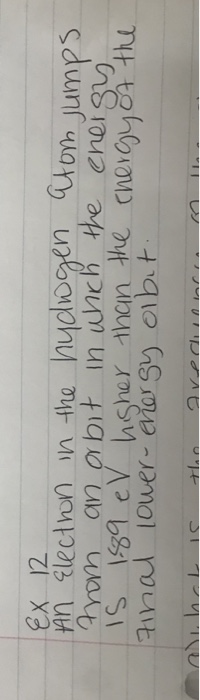 Ex 12
An Electron in the hydrogen atom jumps
from an orbit in which the energy
is 1.89 eV higher than the energy of the
final lower-energy orbit.
a) what is the frequency of the